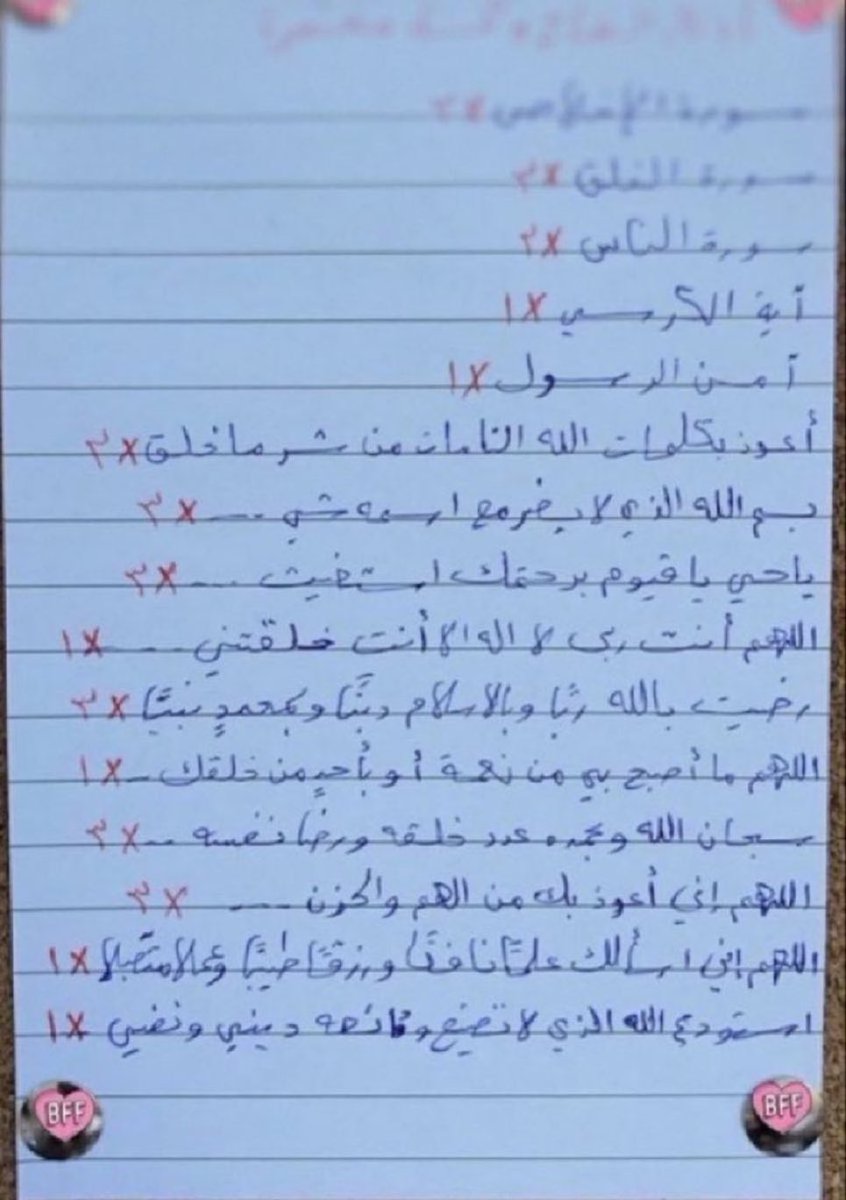 سورة الإخلاص x٣
سورة الفلق x٣
سورة الناس x٣
آية الكرسي x١
آمن الرسول x١
أعوذ بكلمات الله التامات من شر ما خلق x٣
بسم الله الذي لا يضر مع اسمه شي .... x٣
ياحي يا قيوم برحمتك استغيث .... x٣
اللهم أنت ربي لا اله الا أنت خلقتني .... x١
رضيت بالله ربًا وبالاسلام دينًا وبمحمدٍ نبيًا x٣
اللهم ما أصبح بي من نعمة أو بأحدٍ من خلقك .. x١
سبحان الله وبحمده عدد خلقه ورضا نفسه ... x٣
اللهم إني أعوذ بك من الهم والحزن .... x٣
اللهم إني اسألك علمًا نافعًا ورزقًا طيبًا وعملا متقبلا x١
استودع الله الذي لا تضيع ودائعه ديني ونفسي x١
BFF BFF